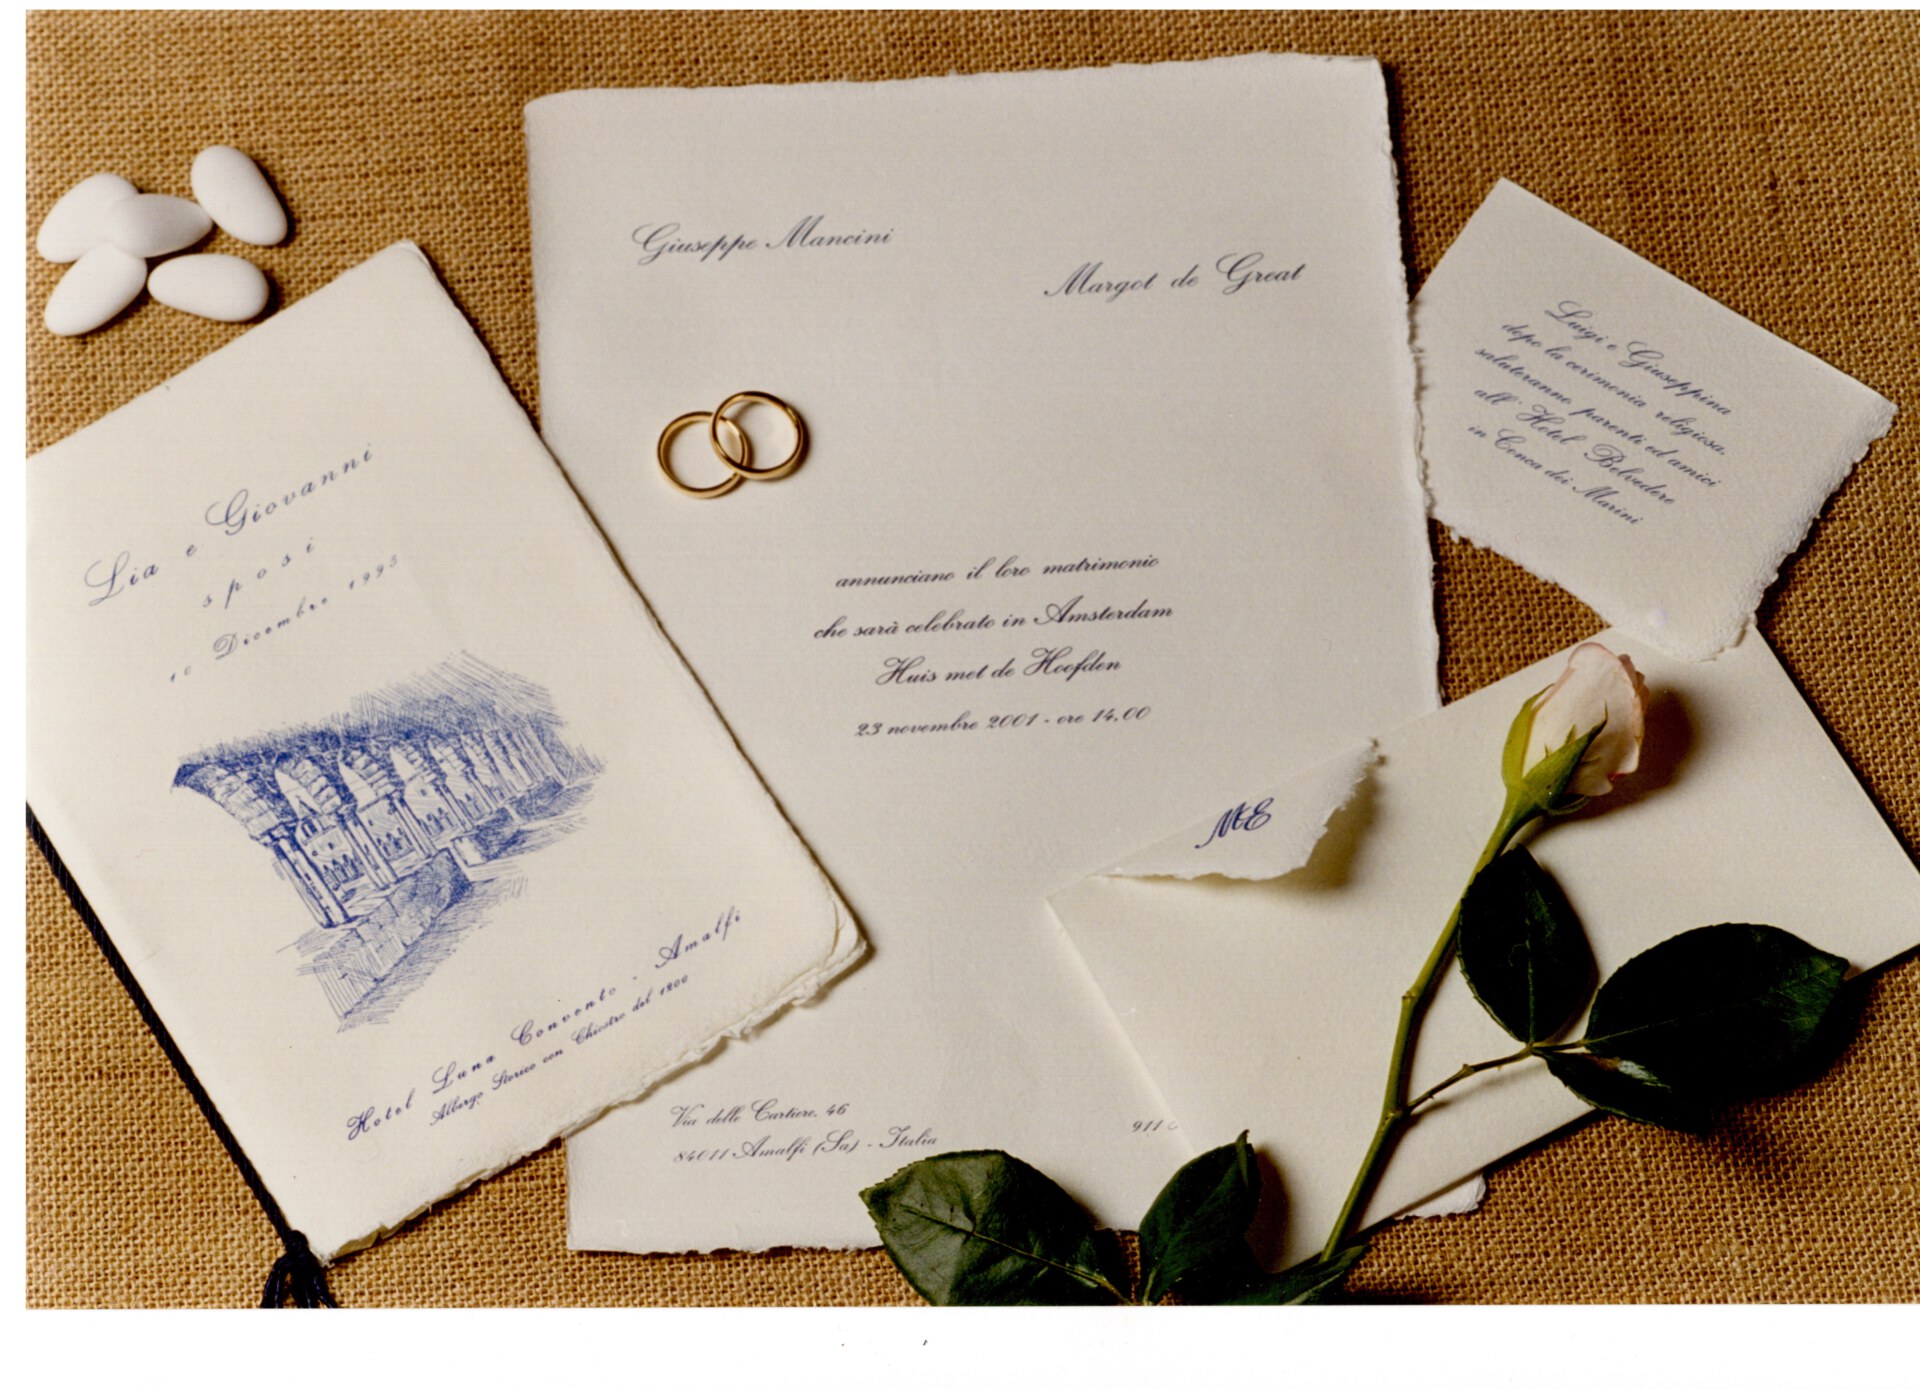 Lia e Giovanni
sposi
10 Dicembre 1995
Hotel Luna Convento - Amalfi
Albergo Storico con Chiostro del 1200
Giuseppe Mancini
Margot de Great
annunciano il loro matrimonio
che sarà celebrato in Amsterdam
Huis met de Hoofden
23 novembre 2001 - ore 14.00
Via delle Cartiere, 46
84011 Amalfi (Sa) - Italia
911
Luigi e Giuseppina
dopo la cerimonia religiosa,
saluteranno parenti ed amici
all'Hotel Belvedere
in Conca dei Marini